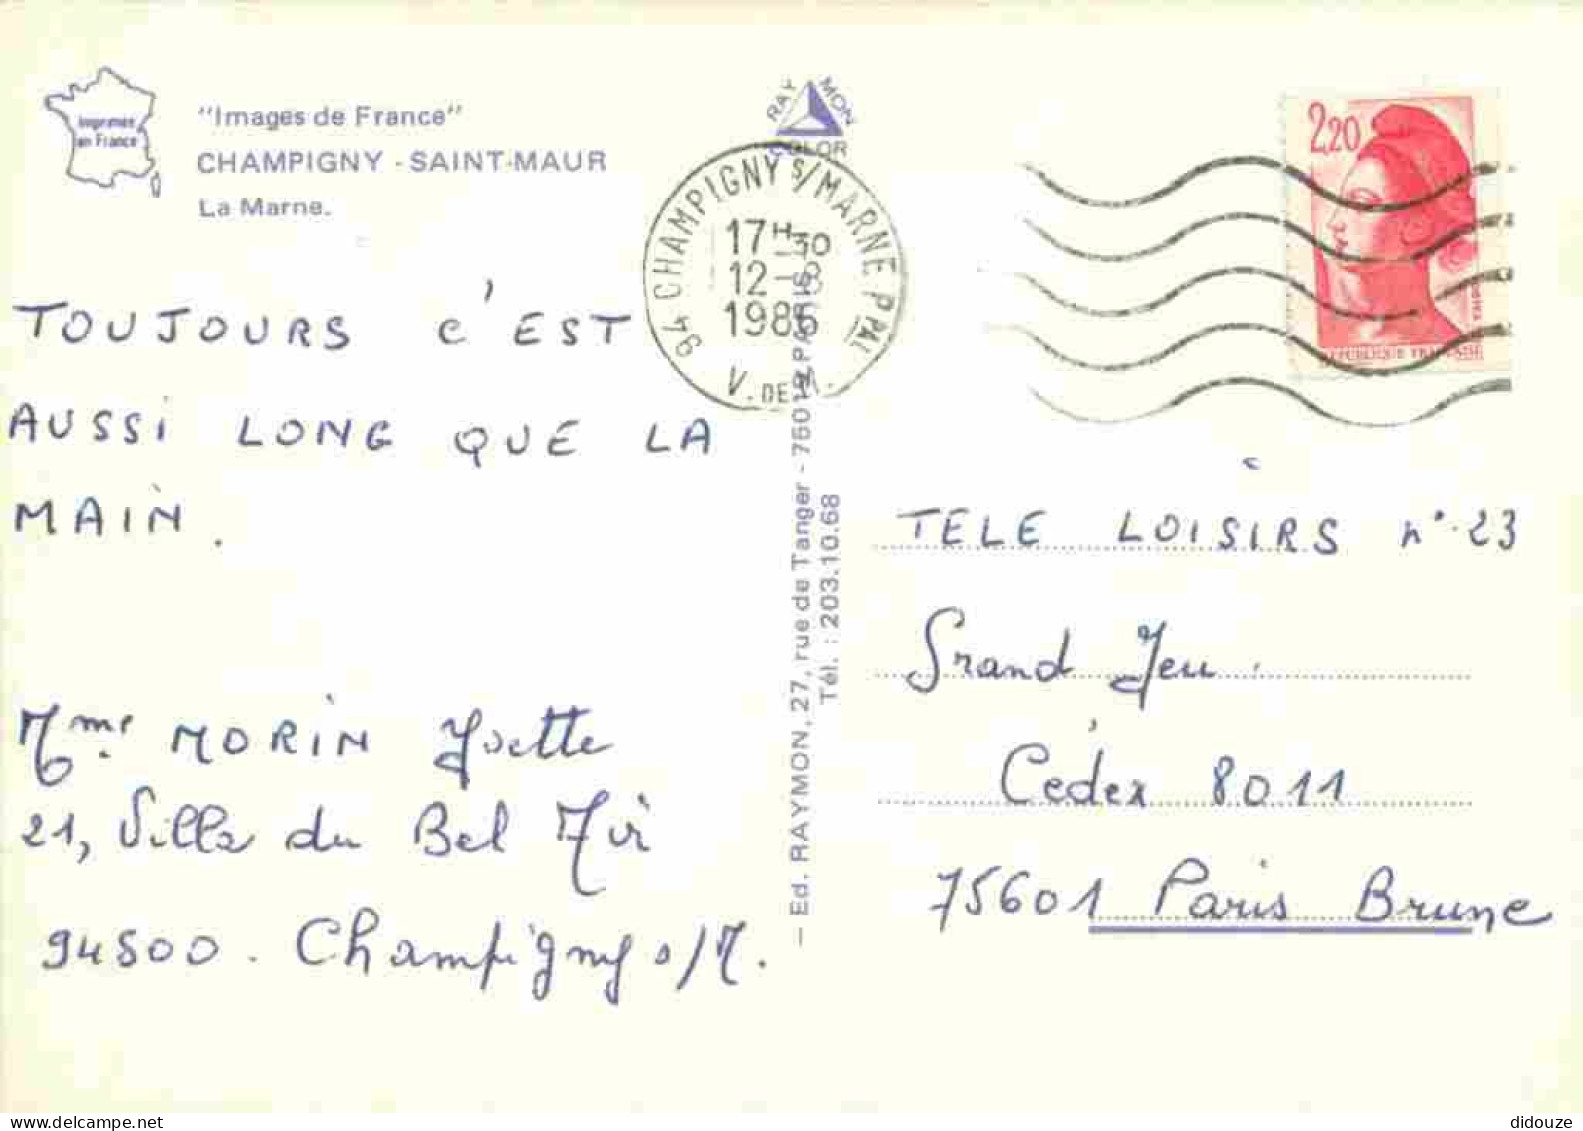 Imprimée
en France
"Images de France"
CHAMPIGNY - SAINT-MAUR
La Marne.
RAYMON
COLOR
94 CHAMPIGNY S/MARNE PPAL
17H30
12-8
1986
V. DE M.
2,20
REPUBLIQUE FRANÇAISE
TOUJOURS C'EST
AUSSI LONG QUE LA
MAIN.
Mme MORIN Yvette
21, Villa du Bel Air
94500. Champigny s/M.
— Ed. RAYMON, 27, rue de Tanger - 75019 PARIS
Tél. : 203.10.68
TELE LOISIRS n° 23
Grand Jeu.
Cedex 8011
75601 Paris Brune
didouze